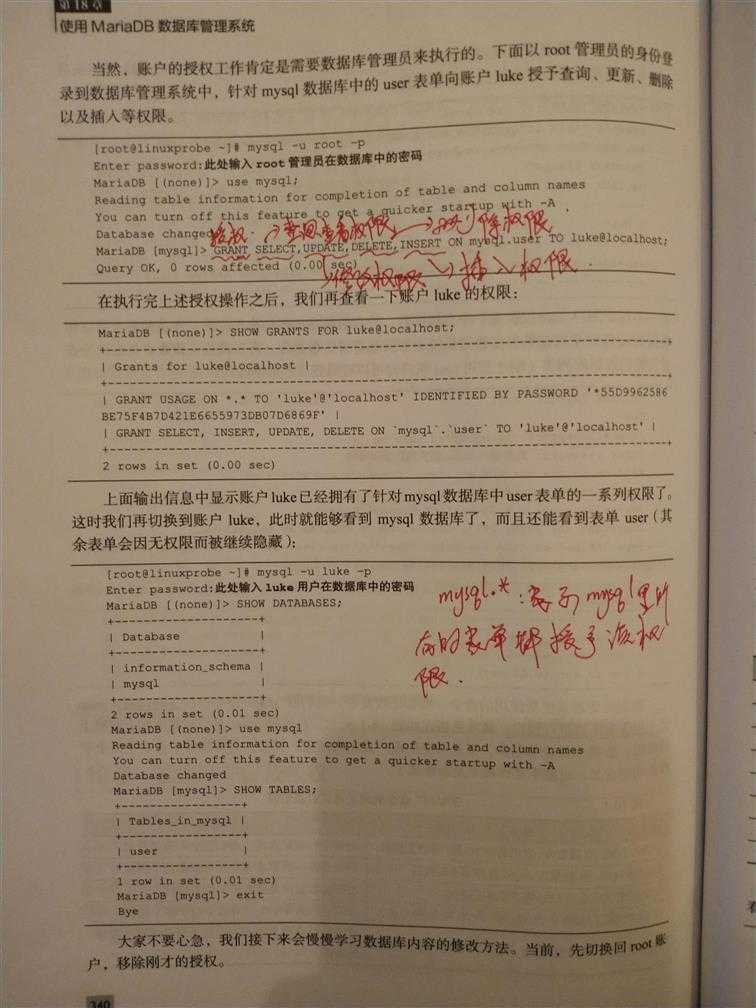 第18章
使用 MariaDB 数据库管理系统
当然，账户的授权工作肯定是需要数据库管理员来执行的。下面以 root 管理员的身份登
录到数据库管理系统中，针对 mysql 数据库中的 user 表单向账户 luke 授予查询、更新、删除
以及插入等权限。
[root@linuxprobe ~]# mysql -u root -p
Enter password:此处输入 root 管理员在数据库中的密码
MariaDB [(none)]> use mysql;
Reading table information for completion of table and column names
You can turn off this feature to get a quicker startup with -A
Database changed
授权 查看权限 删除权限
MariaDB [mysql]> GRANT SELECT,UPDATE,DELETE,INSERT ON mysql.user TO luke@localhost;
Query OK, 0 rows affected (0.00 sec)
修改权限 插入权限.
在执行完上述授权操作之后，我们再查看一下账户 luke 的权限：
MariaDB [(none)]> SHOW GRANTS FOR luke@localhost;
+------------------------------------------------------------------------+
| Grants for luke@localhost |
+------------------------------------------------------------------------+
| GRANT USAGE ON *.* TO 'luke'@'localhost' IDENTIFIED BY PASSWORD '*55D9962586
BE75F4B7D421E6655973DB07D6869F' |
| GRANT SELECT, INSERT, UPDATE, DELETE ON `mysql`.`user` TO 'luke'@'localhost' |
+------------------------------------------------------------------------+
2 rows in set (0.00 sec)
上面输出信息中显示账户luke已经拥有了针对mysql数据库中user表单的一系列权限了。
这时我们再切换到账户 luke，此时就能够看到 mysql 数据库了，而且还能看到表单 user（其
余表单会因无权限而被继续隐藏）：
[root@linuxprobe ~]# mysql -u luke -p
Enter password:此处输入 luke 用户在数据库中的密码
MariaDB [(none)]> SHOW DATABASES;
+--------------------+
| Database |
+--------------------+
| information_schema |
| mysql |
+--------------------+
2 rows in set (0.01 sec)
MariaDB [(none)]> use mysql
Reading table information for completion of table and column names
You can turn off this feature to get a quicker startup with -A
Database changed
MariaDB [mysql]> SHOW TABLES;
+-----------------+
| Tables_in_mysql |
+-----------------+
| user |
+-----------------+
1 row in set (0.01 sec)
MariaDB [mysql]> exit
Bye
mysql.*：表示mysql里所
有的表单都授予该权
限.
大家不要心急，我们接下来会慢慢学习数据库内容的修改方法。当前，先切换回 root 账
户，移除刚才的授权。
340